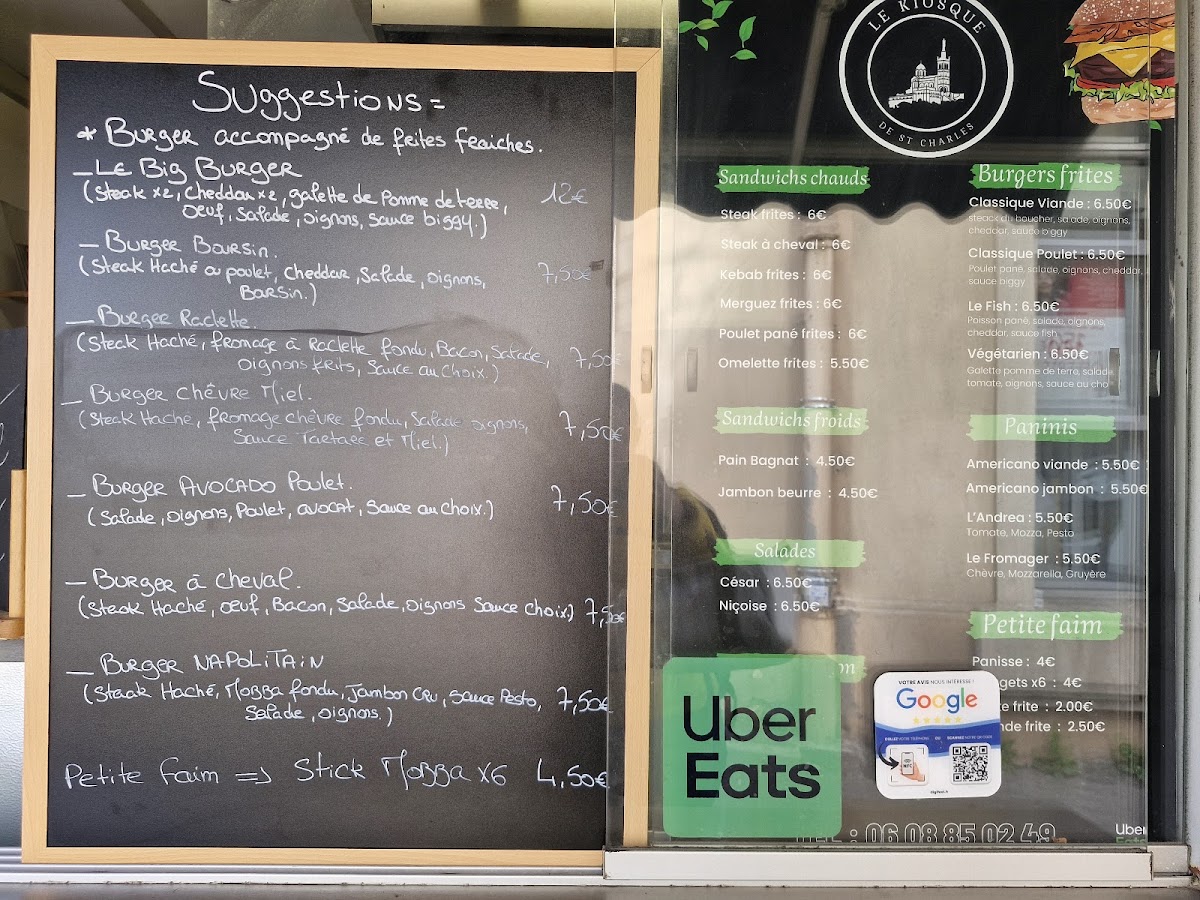 Suggestions =
* Burger accompagné de frites fraiches.
_ Le Big Burger
(Steak x2, Cheddar x2, galette de Pomme de terre, 12€
Oeuf, Salade, oignons, Sauce biggy.)
_ Burger Boursin.
(Steak Haché ou poulet, Cheddar, Salade, oignons, 7,50€
Boursin.)
_ Burger Raclette.
(Steak Haché, fromage à Raclette fondu, Bacon, Salade, 7,50€
oignons frits, Sauce au choix.)
_ Burger Chêvre Miel.
(Steak Haché, fromage chêvre fondu, Salade oignons, 7,50€
Sauce Tartare et Miel.)
_ Burger Avocado Poulet. 7,50€
(Salade, oignons, Poulet, avocat, Sauce au choix.)
_ Burger à Cheval.
(Steak Haché, oeuf, Bacon, Salade, oignons Sauce choix) 7,50€
_ Burger NAPOLiTAiN
(Steak Haché, Mozza fondu, Jambon Cru, Sauce Pesto, 7,50€
Salade, oignons.)
Petite faim => Stick Mozza x6 4,50€
LE KIOSQUE
DE ST CHARLES
Sandwichs chauds
Steak frites : 6€
Steak à cheval : 6€
Kebab frites : 6€
Merguez frites : 6€
Poulet pané frites : 6€
Omelette frites : 5.50€
Sandwichs froids
Pain Bagnat : 4.50€
Jambon beurre : 4.50€
Salades
César : 6.50€
Niçoise : 6.50€
Burgers frites
Classique Viande : 6.50€
steack du boucher, salade, oignons,
cheddar, sauce biggy
Classique Poulet : 6.50€
Poulet pané, salade, oignons, cheddar,
sauce biggy
Le Fish : 6.50€
Poisson pané, salade, oignons,
cheddar, sauce fish
Végétarien : 6.50€
Galette pomme de terre, salade
tomate, oignons, sauce au cho
Paninis
Americano viande : 5.50€
Americano jambon : 5.50€
L'Andrea : 5.50€
Tomate, Mozza, Pesto
Le Fromager : 5.50€
Chèvre, Mozzarella, Gruyère
Petite faim
Panisse : 4€
gets x6 : 4€
te frite : 2.00€
nde frite : 2.50€
Uber
Eats
VOTRE AVIS NOUS INTÉRESSE !
Google
: 06 08 85 02 49
Uber
Eats